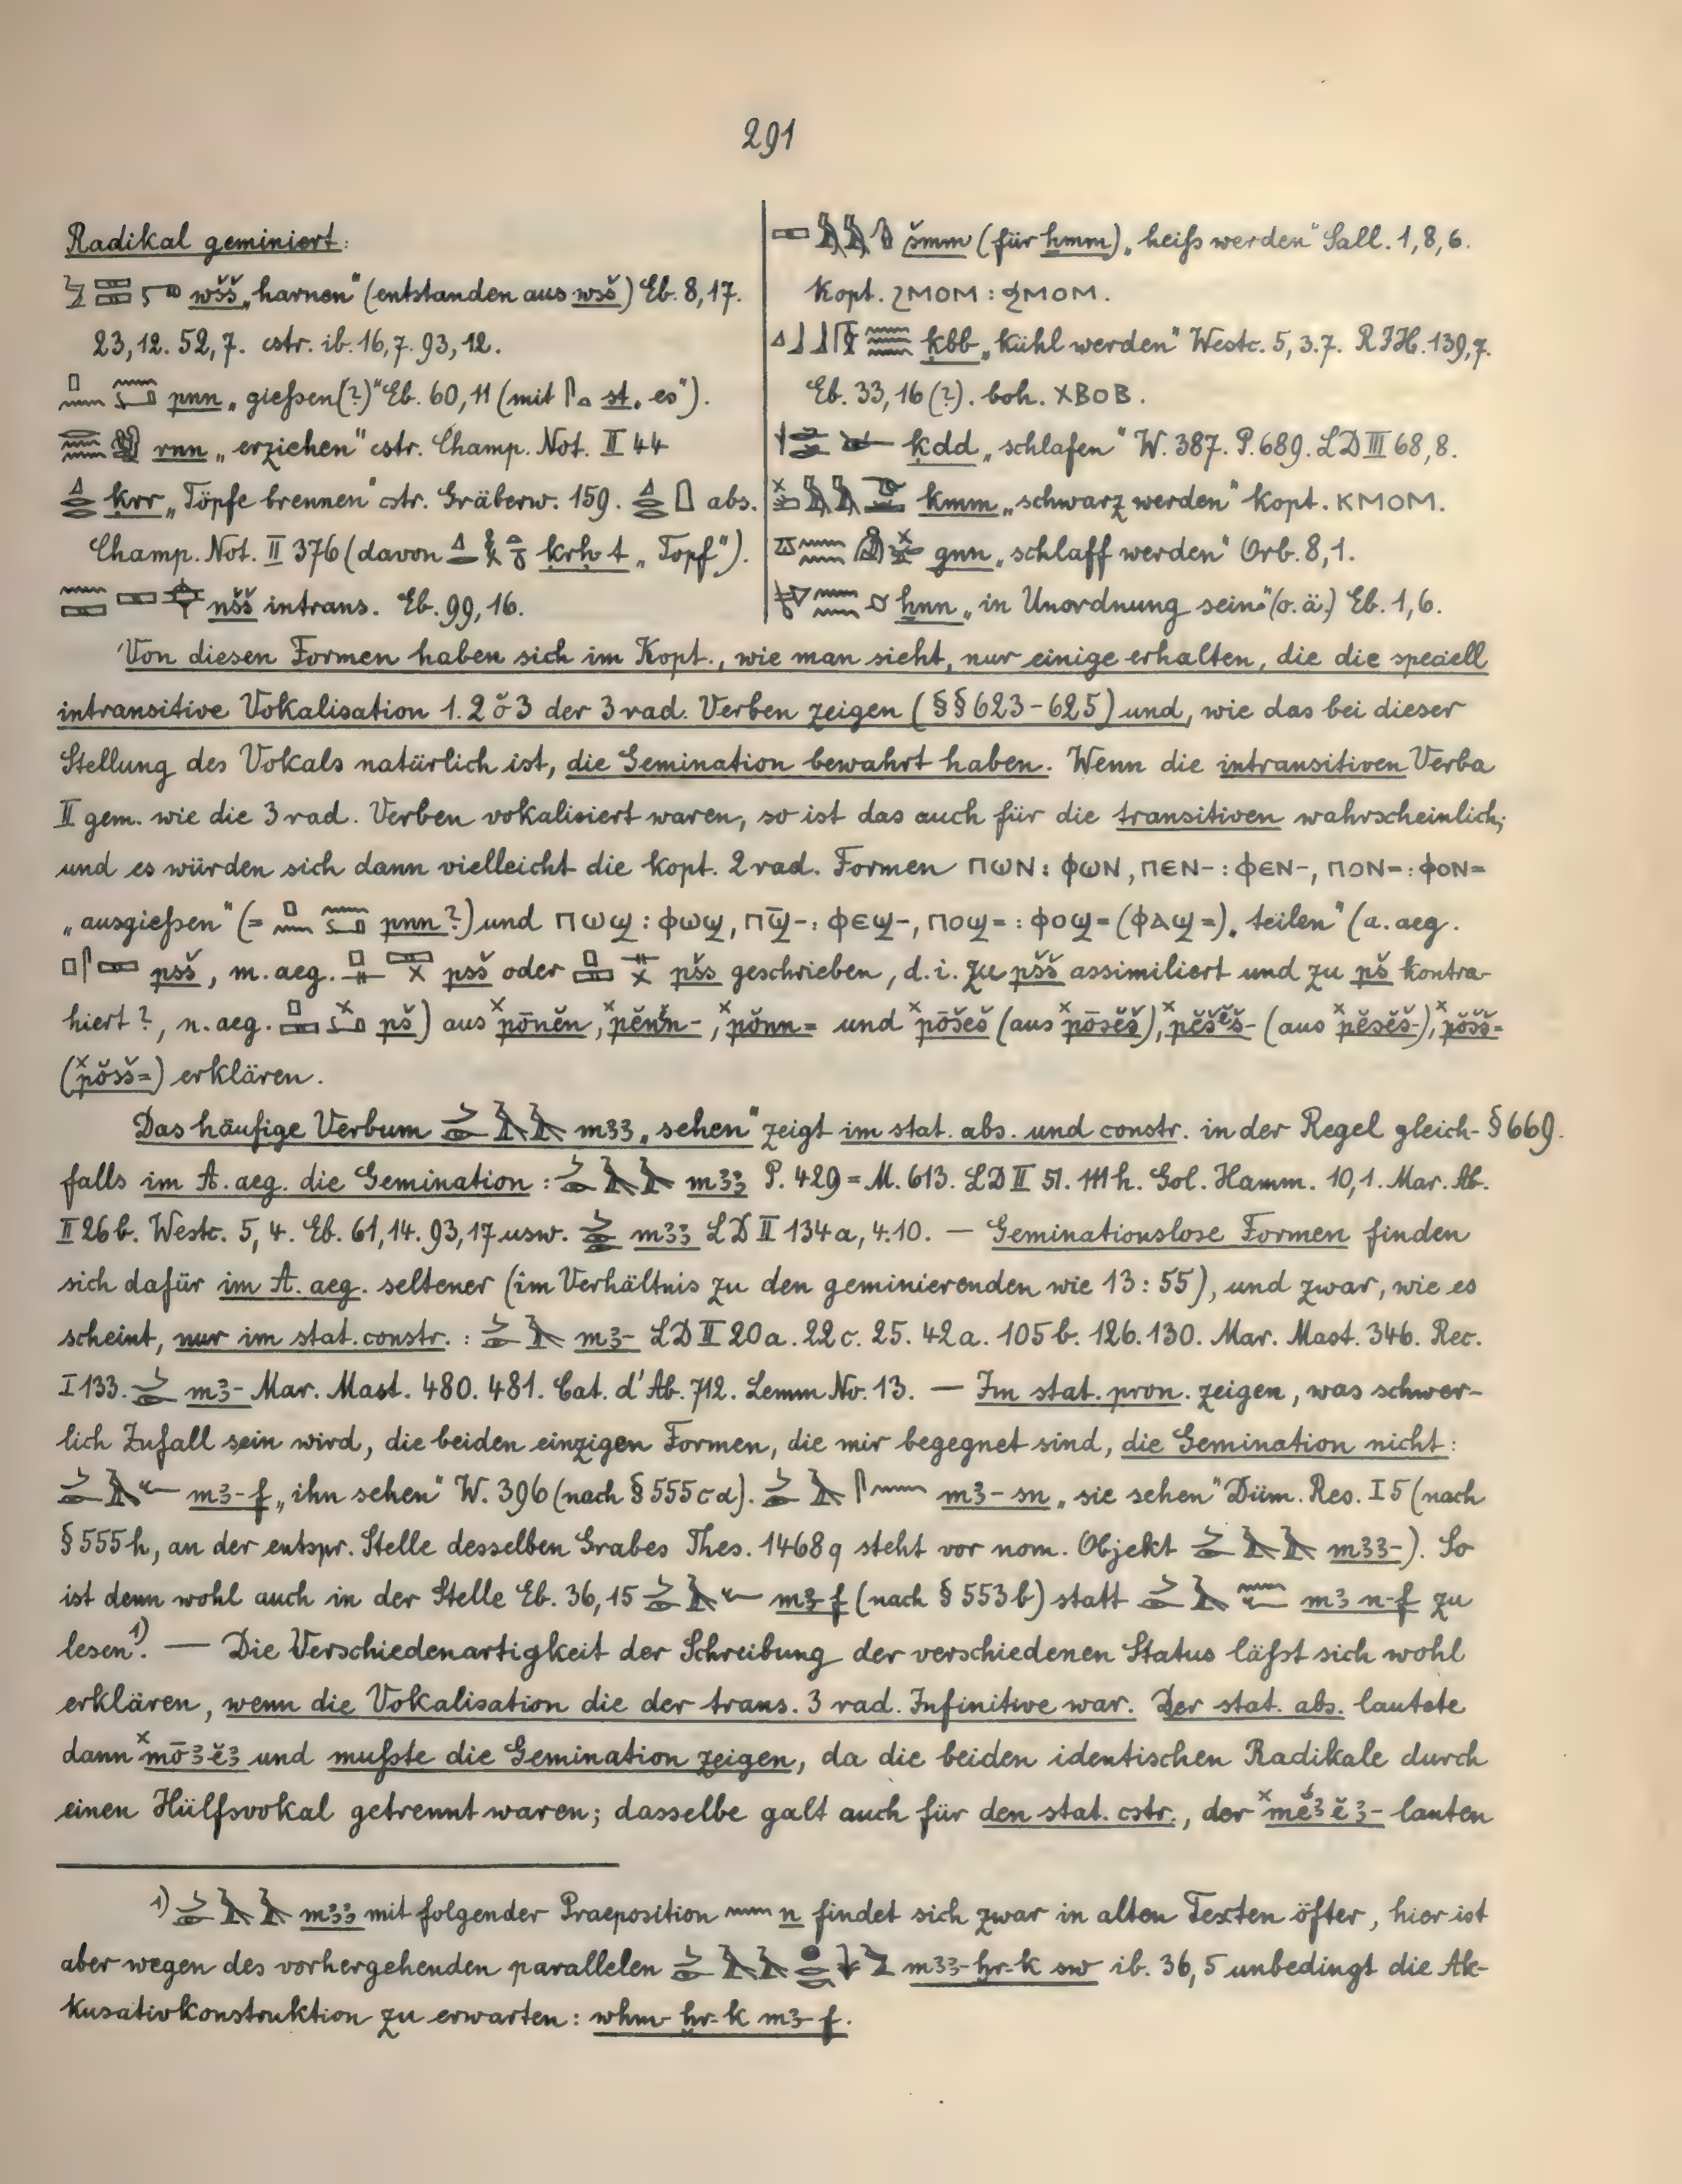 291
Radikal geminiert:
wšš „harnen“ (entstanden aus wsš) Eb. 8,17.
23,12. 52,7. cstr. ib. 16,7. 93,12.
pnn „gießen(?)“ Eb. 60,11 (mit st „es“).
rnn „erziehen“ cstr. Champ. Not. II 44
ḳrr „Töpfe brennen“ cstr. Gräberw. 159. abs.
Champ. Not. II 376 (davon ḳrḥ·t „Topf“).
nšš intrans. Eb. 99,16.
šmm (für ẖmm) „heiß werden“ Sall. 1,8,6.
Kopt. ϩⲙⲟⲙ : ϧⲙⲟⲙ.
ḳbb „kühl werden“ Westc. 5,3.7. RIH. 139,7.
Eb. 33,16 (?). boh. ⲭⲃⲟⲃ.
ḳdd „schlafen“ W. 387. P. 689. LD III 68,8.
kmm „schwarz werden“ Kopt. ⲕⲙⲟⲙ.
gnn „schlaff werden“ Orb. 8,1.
ẖnn „in Unordnung sein“ (o. ä.) Eb. 1,6.
Von diesen Formen haben sich im Kopt., wie man sieht, nur einige erhalten, die die speciell
intransitive Vokalisation 1. 2 ŏ 3 der 3 rad. Verben zeigen (§§ 623-625) und, wie das bei dieser
Stellung des Vokals natürlich ist, die Gemination bewahrt haben. Wenn die intransitiven Verba
II gem. wie die 3 rad. Verben vokalisiert waren, so ist das auch für die transitiven wahrscheinlich;
und es würden sich dann vielleicht die kopt. 2 rad. Formen ⲡⲱⲛ : ⲫⲱⲛ, ⲡⲉⲛ- : ⲫⲉⲛ-, ⲡⲟⲛ= : ⲫⲟⲛ=
„ausgießen“ (= pnn?) und ⲡⲱϣ : ⲫⲱϣ, ⲡϣ̄- : ⲫⲉϣ-, ⲡⲟϣ= : ⲫⲟϣ= (ⲫⲁϣ=) „teilen“ (a. aeg.
psš, m. aeg. psš oder pšs geschrieben, d. i. zu pšš assimiliert und zu pš kontra-
hiert?, n. aeg. pš) aus ˣpōnĕn, ˣpĕnĕn-, ˣpŏnn= und ˣpōšeš (aus ˣpōsĕš), ˣpĕšĕš- (aus ˣpĕsĕš-), ˣpŏšš=
(ˣpŏsš=) erklären.
Das häufige Verbum mꜣꜣ „sehen“ zeigt im stat. abs. und constr. in der Regel gleich- § 669.
falls im A. aeg. die Gemination: mꜣꜣ P. 429 = M. 613. LD II 51. 111h. Gol. Hamm. 10,1. Mar. Ab.
II 26b. Westc. 5,4. Eb. 61,14. 93,17 usw. mꜣꜣ LD II 134a, 4.10. — Geminationslose Formen finden
sich dafür im A. aeg. seltener (im Verhältnis zu den geminierenden wie 13 : 55), und zwar, wie es
scheint, nur im stat. constr. : mꜣ- LD II 20a. 22c. 25. 42a. 105b. 126. 130. Mar. Mast. 346. Rec.
I 133. mꜣ- Mar. Mast. 480. 481. Cat. d'Ab. 712. Lemm No. 13. — Im stat. pron. zeigen, was schwer-
lich Zufall sein wird, die beiden einzigen Formen, die mir begegnet sind, die Gemination nicht:
mꜣ-f „ihn sehen“ W. 396 (nach § 555cα). mꜣ-sn „sie sehen“ Düm. Res. I 5 (nach
§ 555h, an der entspr. Stelle desselben Grabes Thes. 1468q steht vor nom. Objekt mꜣꜣ-). So
ist denn wohl auch in der Stelle Eb. 36,15 mꜣ-f (nach § 553b) statt mꜣ n-f zu
lesen¹⁾. — Die Verschiedenartigkeit der Schreibung der verschiedenen Status läßt sich wohl
erklären, wenn die Vokalisation die der trans. 3 rad. Infinitive war. Der stat. abs. lautete
dann ˣmōꜣĕꜣ und mußte die Gemination zeigen, da die beiden identischen Radikale durch
einen Hülfsvokal getrennt waren; dasselbe galt auch für den stat. cstr., der ˣmĕꜣĕꜣ- lauten
1) mꜣꜣ mit folgender Praeposition n findet sich zwar in alten Texten öfter, hier ist
aber wegen des vorhergehenden parallelen mꜣꜣ-ḫr-k sw ib. 36,5 unbedingt die Ak-
kusativkonstruktion zu erwarten: wḥm-ḫr-k mꜣ-f.